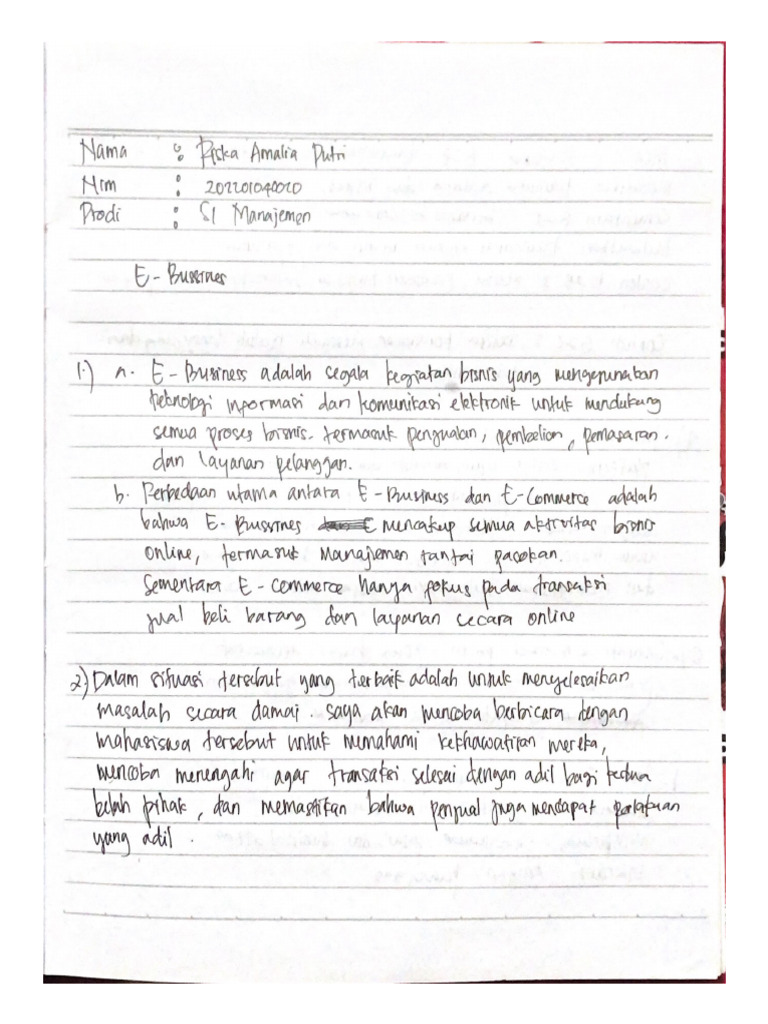 Nama : Riska Amalia Putri
Nim : 202201040020
Prodi : S1 Manajemen
E - Bussines
1.) a. E - Business adalah segala kegiatan bisnis yang menggunakan
teknologi informasi dan komunikasi elektronik untuk mendukung
semua proses bisnis. termasuk penjualan, pembelian, pemasaran.
dan layanan pelanggan.
b. Perbedaan utama antara E - Business dan E - Commerce adalah
bahwa E - Bussines mencakup semua aktivitas bisnis
online, termasuk Manajemen rantai pasokan.
Sementara E - commerce hanya fokus pada transaksi
jual beli barang dan layanan secara online
2) Dalam situasi tersebut yang terbaik adalah untuk menyelesaikan
masalah secara damai. saya akan mencoba berbicara dengan
mahasiswa tersebut untuk memahami kekhawatiran mereka,
mencoba menengahi agar transaksi selesai dengan adil bagi kedua
belah pihak, dan memastikan bahwa penjual juga mendapat perlakuan
yang adil.